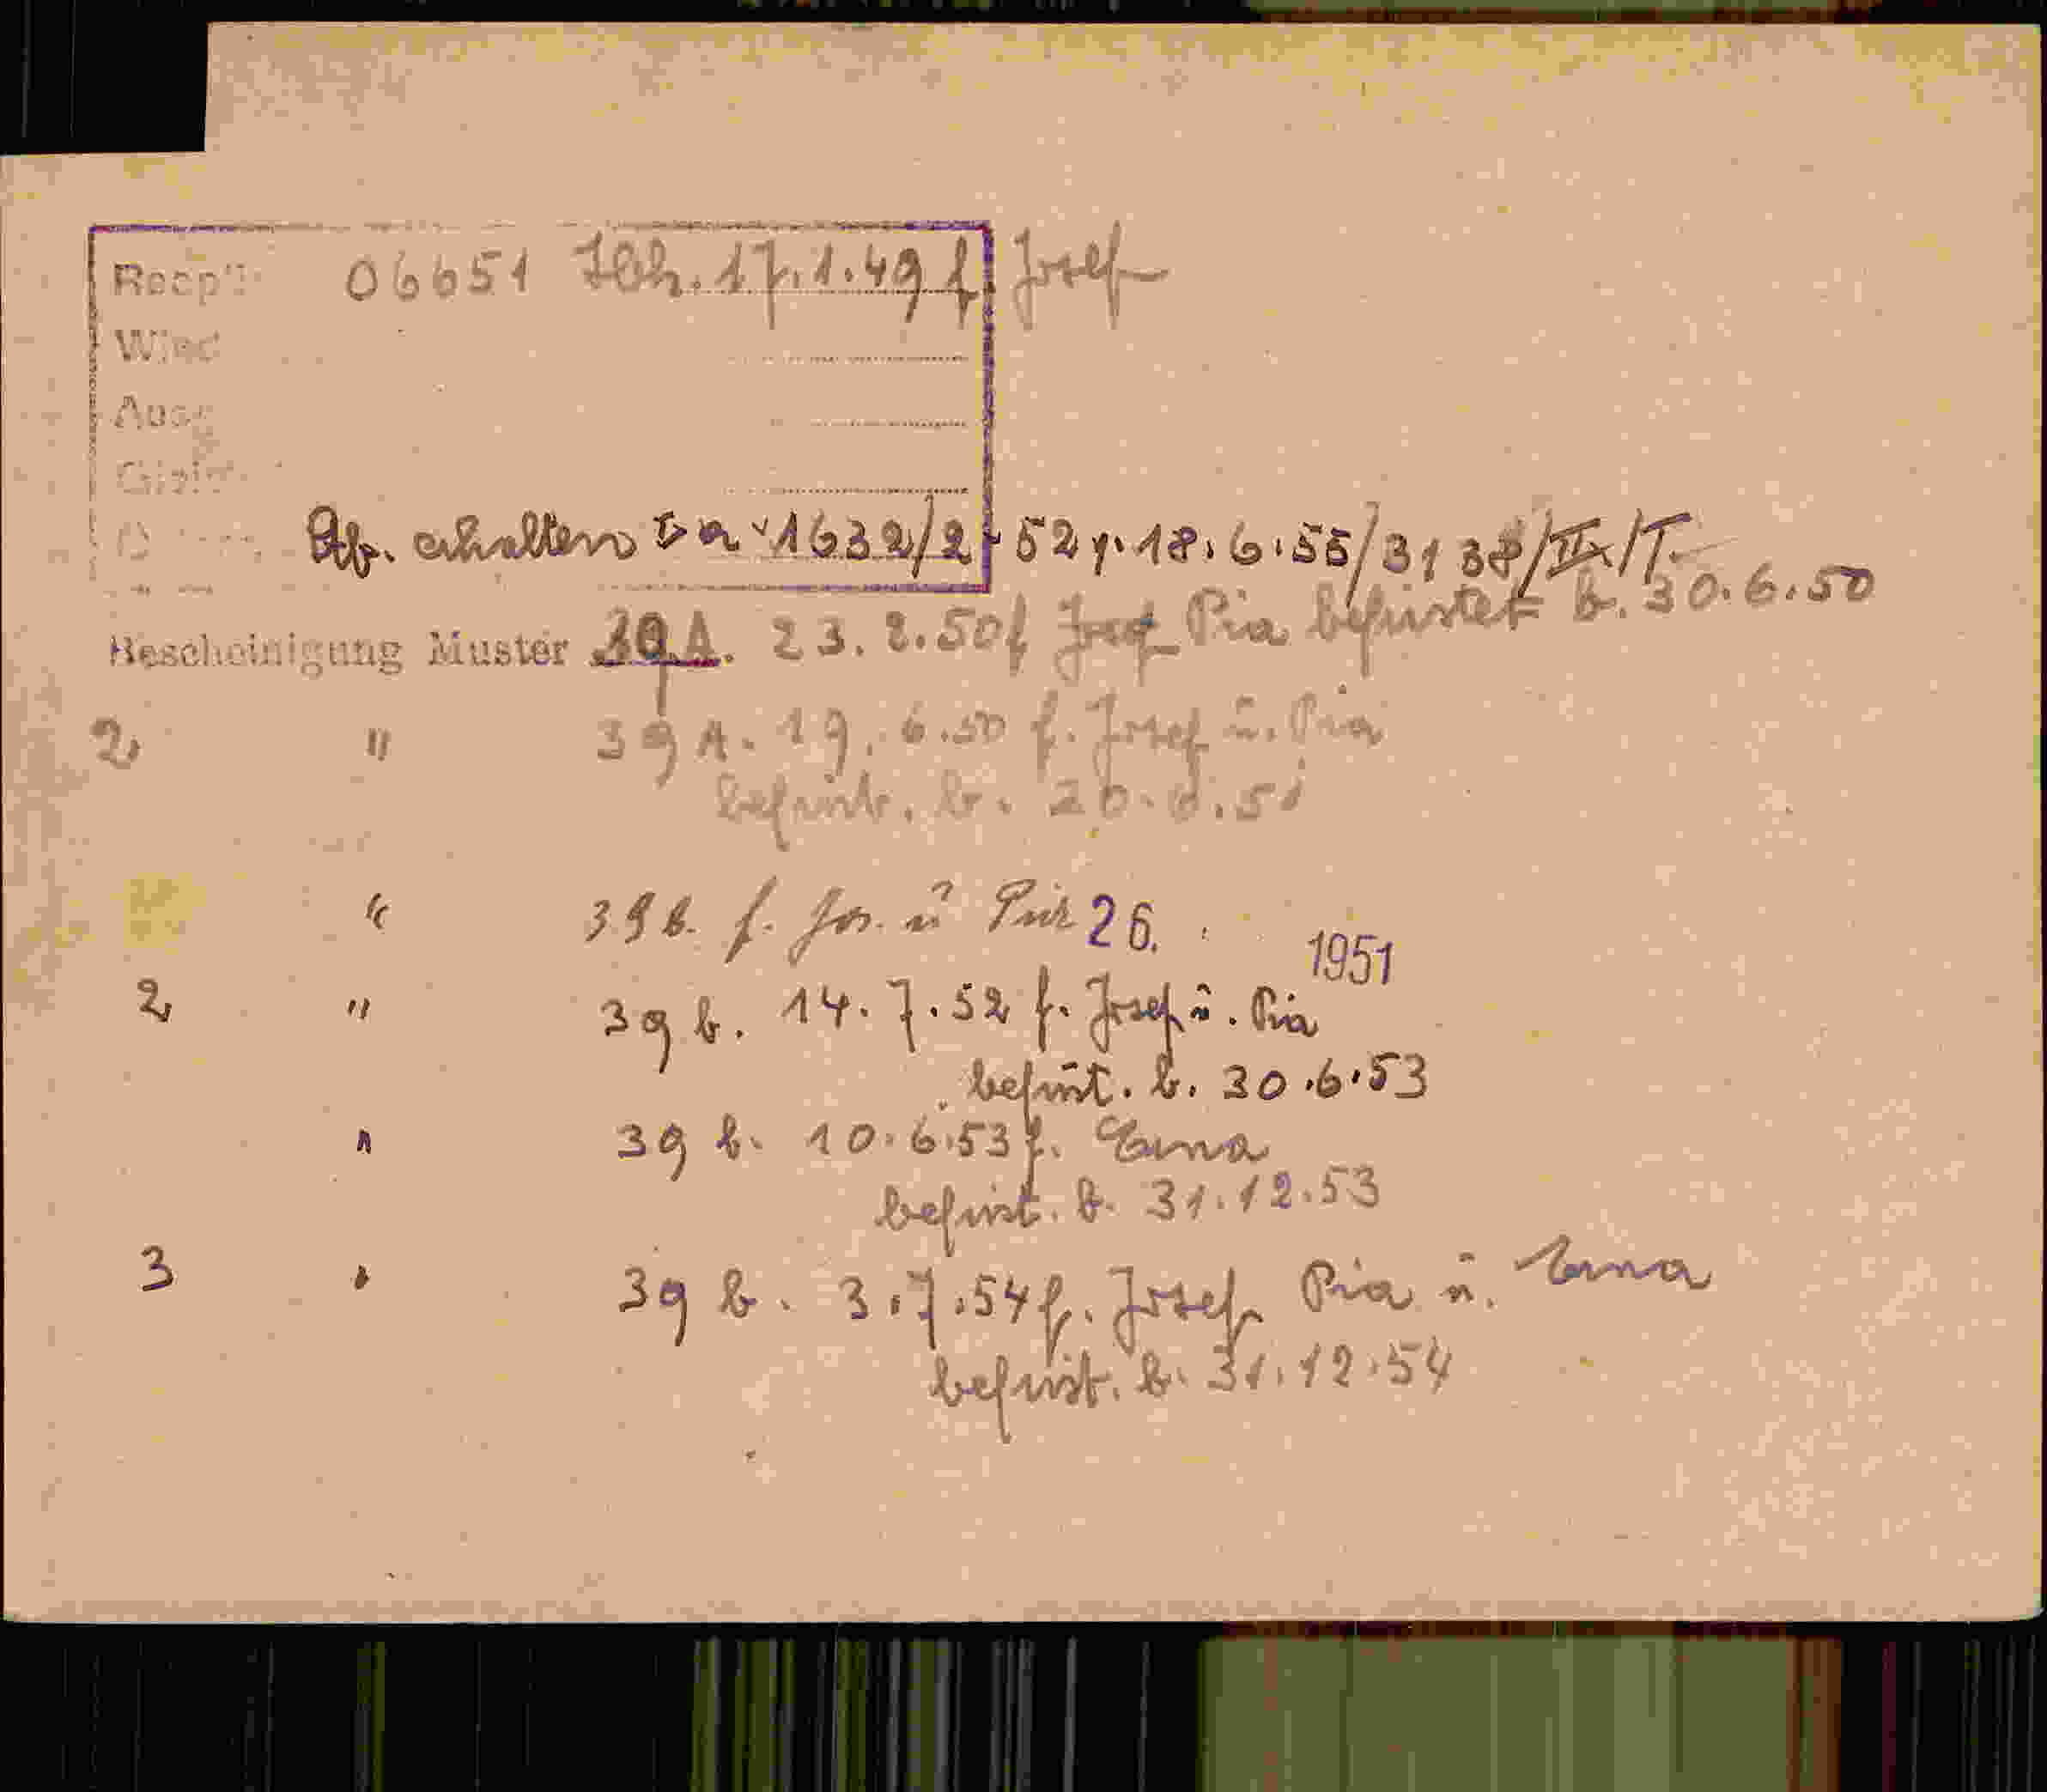 06651 17.1.49 f Josef
erhalten 1632/2 52 18.6.55/3138/II/I
Bescheinigung Muster 39A. 23.2.50 f Josef Pia befristet b. 30.6.50
2 " 39A. 19.6.50 f. Josef u. Pia
befrist. b. 51
" 39b. f. Jos. u Pia 26. 1951
2 " 39b. 14.7.52 f. Josef u. Pia
befrist. b. 30.6.53
" 39b. 10.6.53 f. Erna
befrist. b. 31.12.53
3 " 39b. 3.7.54 f. Josef Pia u. Erna
befrist. b. 31.12.54